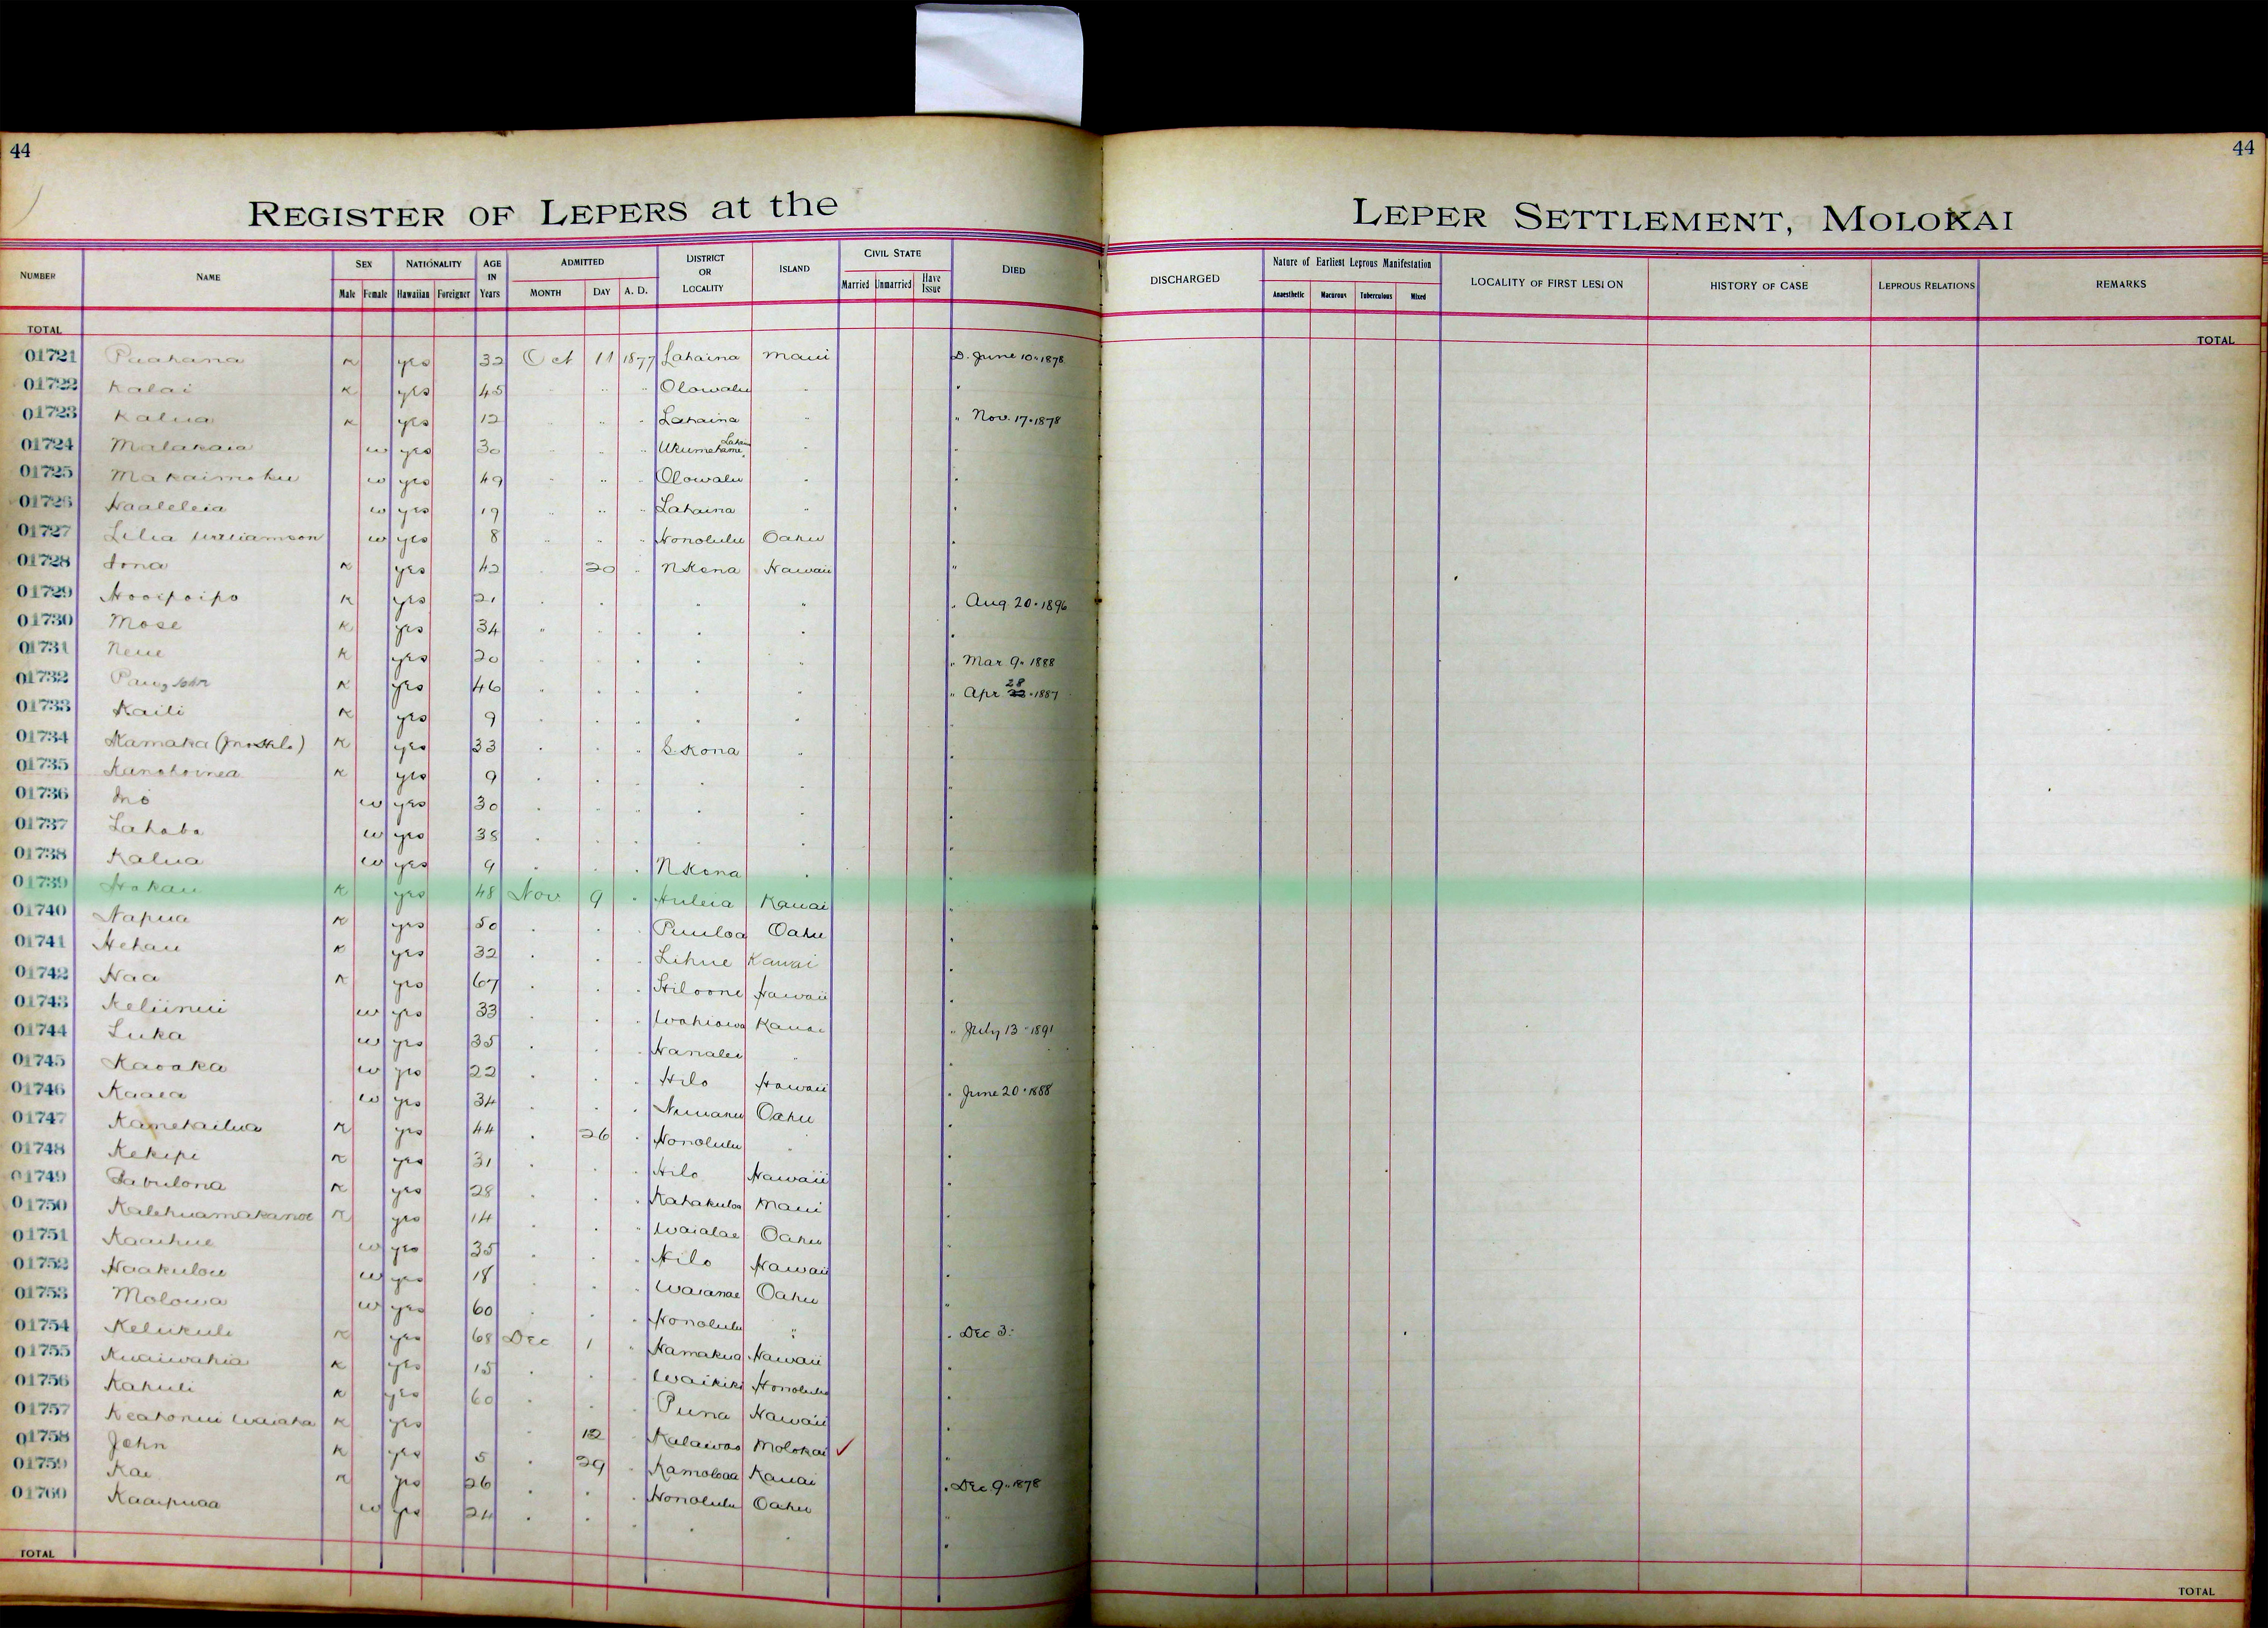 44
44
REGISTER OF LEPERS at the LEPER SETTLEMENT, MOLOKAI
NUMBER NAME SEX Male Female NATIONALITY Hawaiian Foreigner AGE IN Years ADMITTED MONTH DAY A. D. DISTRICT OR LOCALITY ISLAND CIVIL STATE Married Unmarried Have Issue DIED DISCHARGED Nature of Earliest Leprous Manifestation Anaesthetic Macurous Tuberculous Mixed LOCALITY OF FIRST LESION HISTORY OF CASE LEPROUS RELATIONS REMARKS
TOTAL TOTAL
01721 Puahana K yes 32 Oct 11 1877 Lahaina Maui D. June 10 " 1878
01722 Kalai K yes 45 " " Olowalu " "
01723 Kalua K yes 12 " " " Lahaina " " Nov. 17 " 1878
01724 Malakaia w yes 30 " " " " "
01725 Makaimoku w yes 49 " " " Olowalu " "
01726 Haaleleia w yes 19 " " " Lahaina " "
01727 Lilia Williamson w yes 8 " " " Honolulu Oahu "
01728 Iona K yes 42 " 20 " N Kona Hawaii "
01729 Hooipoipo K yes 21 " " " " " Aug. 20 " 1896
01730 Mose K yes 34 " " " " " "
01731 Neue K yes 20 " " " " " " Mar. 9 " 1888
01732 John K yes 46 " " " " " " Apr 28 " 1887
01733 Kaili K yes 9 " " " " "
01734 Kamaka K yes 33 " " " S. Kona " "
01735 K yes 9 " " " " "
01736 w yes 30 " " " " " "
01737 w yes 38 " " " " " "
01738 Kalua w yes 9 " " " N Kona " "
01739 Hokau K yes 48 Nov 9 " Huleia Kauai "
01740 Napua K yes 50 " " " Puuloa Oahu "
01741 Hehau K yes 32 " " " Lihue Kauai "
01742 Naa K yes 67 " " " Hiloone Hawaii "
01743 Keliinui w yes 33 " " " Wahiawa Kauai " July 13 " 1891
01744 Luka w yes 35 " " " Hanalei " "
01745 Kaoaka w yes 22 " " " Hilo Hawaii " June 20 " 1888
01746 Kaaea w yes 34 " " " Nuuanu Oahu "
01747 Kamekailua K yes 44 " 26 " Honolulu " "
01748 Kekipi K yes 31 " " " Hilo Hawaii "
01749 Sabulona K yes 28 " " " Kahakuloa Maui "
01750 K yes 14 " " " Waialae Oahu "
01751 Kaaihue w yes 35 " " " Hilo Hawaii "
01752 Haakulou w yes 18 " " " Waianae Oahu "
01753 Molowa w yes 60 " " " Honolulu " " Dec 3.
01754 Kelikuli K yes 68 Dec 1 " Hamakua Hawaii "
01755 Kuaiwahia K yes 15 " " Waikiki Honolulu "
01756 Kahuli K yes 60 " " Puna Hawaii "
01757 Keahonui K yes " 12 Kalawao Molokai ✓ "
01758 John K yes 5 " 29 " Kamoloaa Kauai " Dec 9 " 1878
01759 Kai K yes 26 " " " Honolulu Oahu "
01760 Kaaipuaa w yes 24 " " " " " "
TOTAL TOTAL